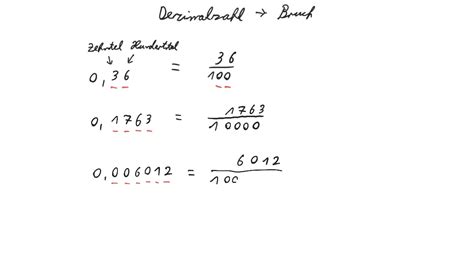 Dezimalzahl → Bruch
Zehntel Hundertstel
0,36 = 36/100
0,1763 = 1763/10000
0,006012 = 6012/100